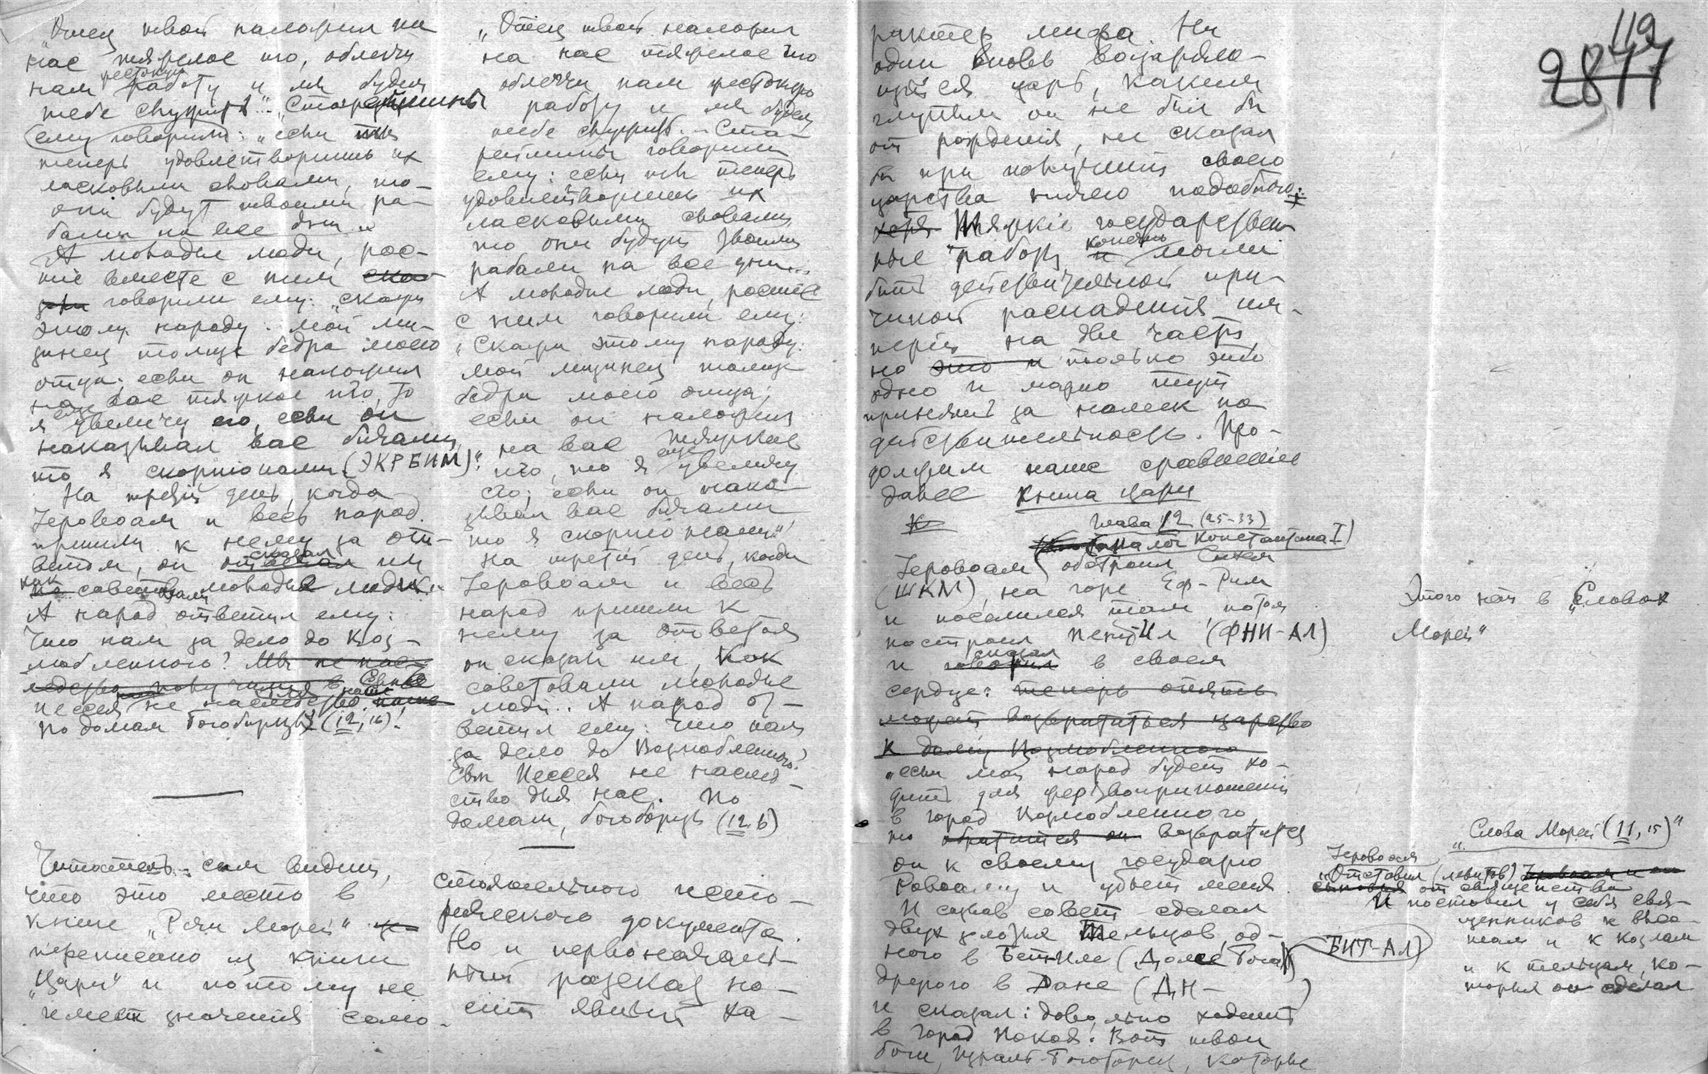 „Отец твой наложил на
нас тяжелое иго, облегчи
нам жестокую работу и мы будем
тебе служить“... Старейшины
ему говорили: „если ты
теперь удовлетворишь их
ласковыми словами, то
они будут твоими ра-
бами на все дни“.
А молодые люди, рос-
шие вместе с ним
говорили ему: „скажи
этому народу: мой ми-
зинец толще бедра моего
отца; если он наложил
на вас тяжкое иго, то
я еще увеличу его, если он
наказывал вас бичами,
то я скорпионами (ЭКРБИМ)“.
На третий день, когда
Iеровоам и весь народ
пришли к нему за отве-
ветом, он сказал им
как советовали молодые люди...
А народ ответил ему:
Что нам за дело до Воз-
любленного? Мы не нас-
ледство получили в Сыне
Иессея не наследство наше
По домам богоборцы! (12, 16).
Читатель сам видит,
что это место в
книге „Речи Морей“
переписано из книги
„Цари“ и потому не
имеет значения само-
„Отец твой наложил
на нас тяжелое иго
облегчи нам жестокую
работу и мы будем
тебе служить. – Ста-
рейшины говорили
ему: если ты теперь
удовлетворишь их
ласковыми словами
то они будут твоими
рабами на все дни...
А молодые люди, росшие
с ним говорили ему:
„Скажи этому народу:
мой мизинец толще
бедра моего отца;
если он наложил
на вас тяжкое
иго, то я еще увеличу
его; если он нака-
зывал вас бичами
то я скорпионами“.
На третий день, когда
Iеровоам и весь
народ пришли к
нему за ответом
он сказал им, как
советовали молодые
люди... А народ от-
ветил ему: Что нам
за дело до Возлюбленного?
Сын Иессея не наслед-
ство для нас. По
домам, богоборцы (12.16)
стоятельного исто-
рического документа.
Но и первоначаль-
ный рассказ но-
сит явный ха-
рактер мифа. Ни
один вновь воцаряю-
щийся царь, каким
глупым он не был бы
от рождения, не сказал
бы при получении своего
царства ничего подобного.
Тяжкие государствен-
ные работы конечно могли
быть действительной при-
чиной распадения им-
перии на две части,
но это и только это
одно и можно тут
принять за намек на
действительность. Про-
должим наше сравнение
далее Книга Цари
Глава 12 (25-33)
Iеровоам (аналог Константина I)
обстроил Сихем
(ШКМ), на горе Еф-Рим
и поселился там, потом
построил Пенуил (ФНИ-АЛ)
и сказал в своем
сердце: теперь опять
может возвратиться царство
к дому Возлюбленного
„если мой народ будет хо-
дить для жертвоприношений
в город Возлюбленного,
то обратится он возвратится
он к своему государю
Ровоаму и убьет меня.
И созвав совет сделал
двух золотых тельцов, од-
ного в Бетиле (Доме Бога)
БИТ-АЛ)
другого в Дане (ДН– )
и сказал: довольно ходить
в город Покоя! Вот твои
боги, Израиль-Богоборец, которые
Этого нет в „Словах
Морей“
„Слова Морей (11, 15)“
Iеровоам
„Отставил (левитов)
от священства
И поставил у себя свя-
щенников к высо-
там и к козлам
и к тельцам, ко-
торых он сделал
119
2877